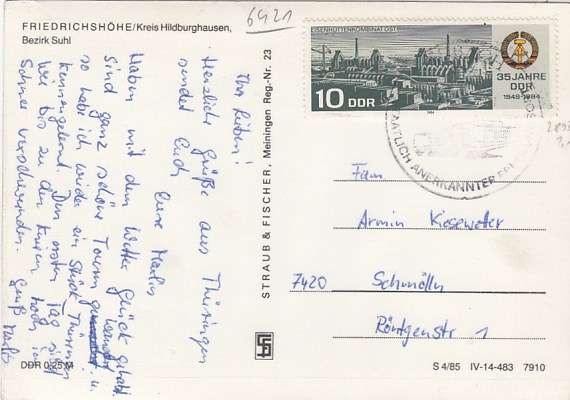 FRIEDRICHSHÖHE/Kreis Hildburghausen,
Bezirk Suhl
6421
Ihr Lieben!
Herzliche Grüße aus Thüringen
sendet Euch
Eure
Haben mit dem Wetter Glück gehabt.
Sind ganz schöne Touren gewandert u.
so habe ich wieder ein Stück Thüringen
kennengelernt. Den ersten Tag sind
wir bis zu den Knien hoch im
Schnee verschwunden. Gruß
STRAUB & FISCHER, Meiningen Reg.-Nr. 23
DDR 0,25 M
EISENHÜTTENKOMBINAT OST
10 DDR
35 JAHRE
DDR
1949-1984
STAATLICH ANERKANNTER
Fam
Armin Kiesewetter
7420 Schmölln
Röntgenstr 1
S 4/85 IV-14-483 7910